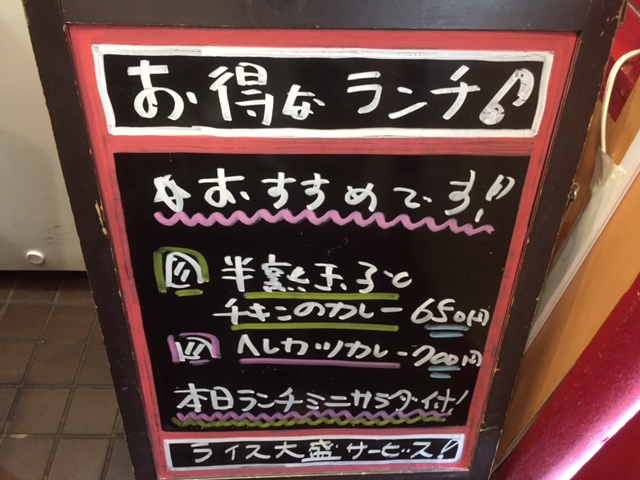 お得なランチ♪
おすすめです!!
半熟玉子と
チキンのカレー 650円
ヘレカツカレー 700円
本日ランチミニサラダ付!
ライス大盛サービス!!